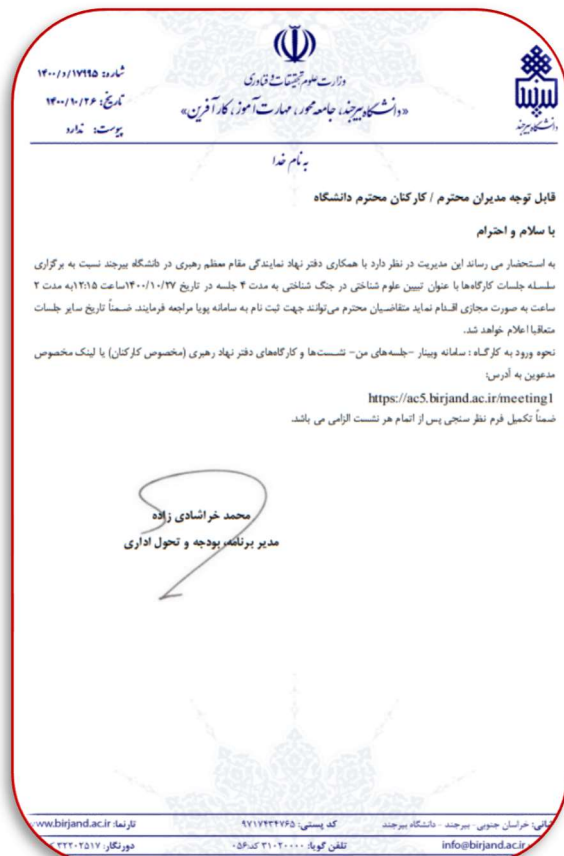 شماره: ۱۴۰۰/د/۱۷۹۹۵
تاریخ: ۱۴۰۰/۱۰/۲۶
پیوست: ندارد
وزارت علوم تحقیقات و فناوری
«دانشگاه بیرجند، جامعه محور، مهارت آموز، کارآفرین»
دانشگاه بیرجند
به نام خدا
قابل توجه مدیران محترم / کارکنان محترم دانشگاه
با سلام و احترام
به استحضار می رساند این مدیریت در نظر دارد با همکاری دفتر نهاد نمایندگی مقام معظم رهبری در دانشگاه بیرجند نسبت به برگزاری
سلسله جلسات کارگاه‌ها با عنوان تبیین علوم شناختی در جنگ شناختی به مدت ۴ جلسه در تاریخ ۱۴۰۰/۱۰/۲۷ساعت ۱۲:۱۵به مدت ۲
ساعت به صورت مجازی اقدام نماید متقاضیان محترم می‌توانند جهت ثبت نام به سامانه پویا مراجعه فرمایند. ضمناً تاریخ سایر جلسات
متعاقبا اعلام خواهد شد.
نحوه ورود به کارگاه : سامانه وبینار -جلسه‌های من- نشست‌ها و کارگاه‌های دفتر نهاد رهبری (مخصوص کارکنان) یا لینک مخصوص
مدعوین به آدرس:
https://ac5.birjand.ac.ir/meeting1
ضمناً تکمیل فرم نظر سنجی پس از اتمام هر نشست الزامی می باشد.
محمد خراشادی زاده
مدیر برنامه، بودجه و تحول اداری
خراسان جنوبی - بیرجند - دانشگاه بیرجند کد پستی: ۹۷۱۷۴۳۴۷۶۵ تارنما: www.birjand.ac.ir
info@birjand.ac.ir تلفن گویا: ۳۱۰۲۰۰۰۰ کد:۰۵۶ دورنگار: ۳۲۲۰۲۵۱۷